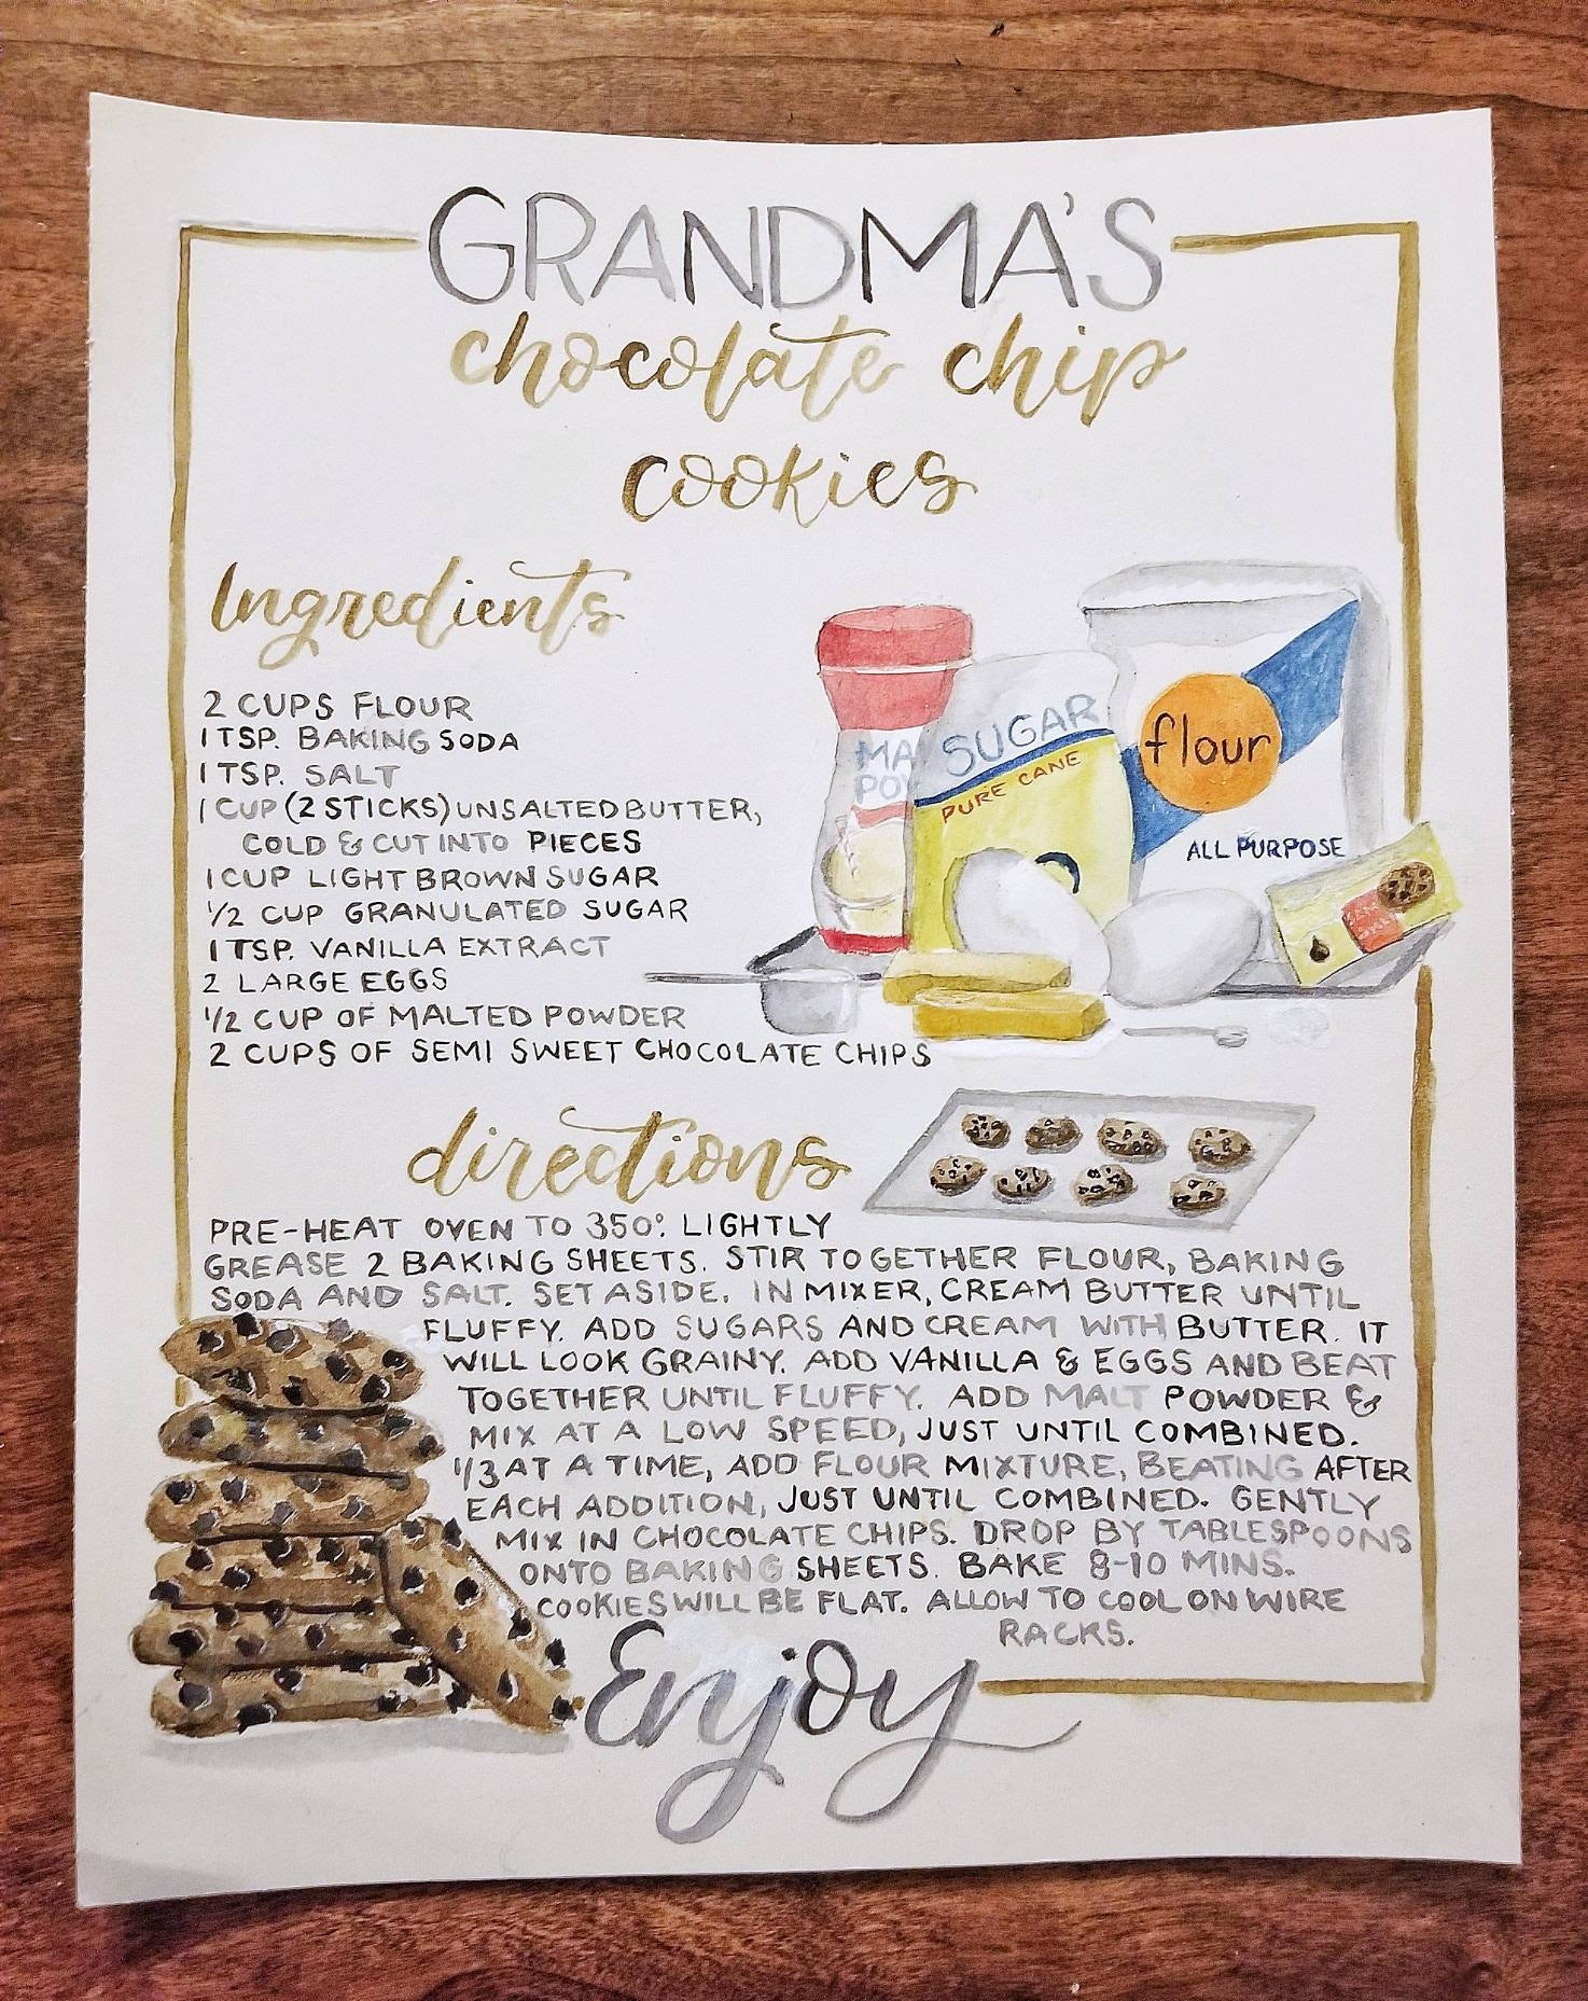 GRANDMA'S
chocolate chip
cookies
Ingredients
2 CUPS FLOUR
1 TSP. BAKING SODA
1 TSP. SALT
1 CUP (2 STICKS) UNSALTED BUTTER,
COLD & CUT INTO PIECES
1 CUP LIGHT BROWN SUGAR
1/2 CUP GRANULATED SUGAR
1 TSP. VANILLA EXTRACT
2 LARGE EGGS
1/2 CUP OF MALTED POWDER
2 CUPS OF SEMI SWEET CHOCOLATE CHIPS
MA
POW
SUGAR
PURE CANE
flour
ALL PURPOSE
directions
PRE-HEAT OVEN TO 350°. LIGHTLY
GREASE 2 BAKING SHEETS. STIR TOGETHER FLOUR, BAKING
SODA AND SALT. SET ASIDE. IN MIXER, CREAM BUTTER UNTIL
FLUFFY. ADD SUGARS AND CREAM WITH BUTTER. IT
WILL LOOK GRAINY. ADD VANILLA & EGGS AND BEAT
TOGETHER UNTIL FLUFFY. ADD MALT POWDER &
MIX AT A LOW SPEED, JUST UNTIL COMBINED.
1/3 AT A TIME, ADD FLOUR MIXTURE, BEATING AFTER
EACH ADDITION, JUST UNTIL COMBINED. GENTLY
MIX IN CHOCOLATE CHIPS. DROP BY TABLESPOONS
ONTO BAKING SHEETS. BAKE 8-10 MINS.
COOKIES WILL BE FLAT. ALLOW TO COOL ON WIRE
RACKS.
Enjoy